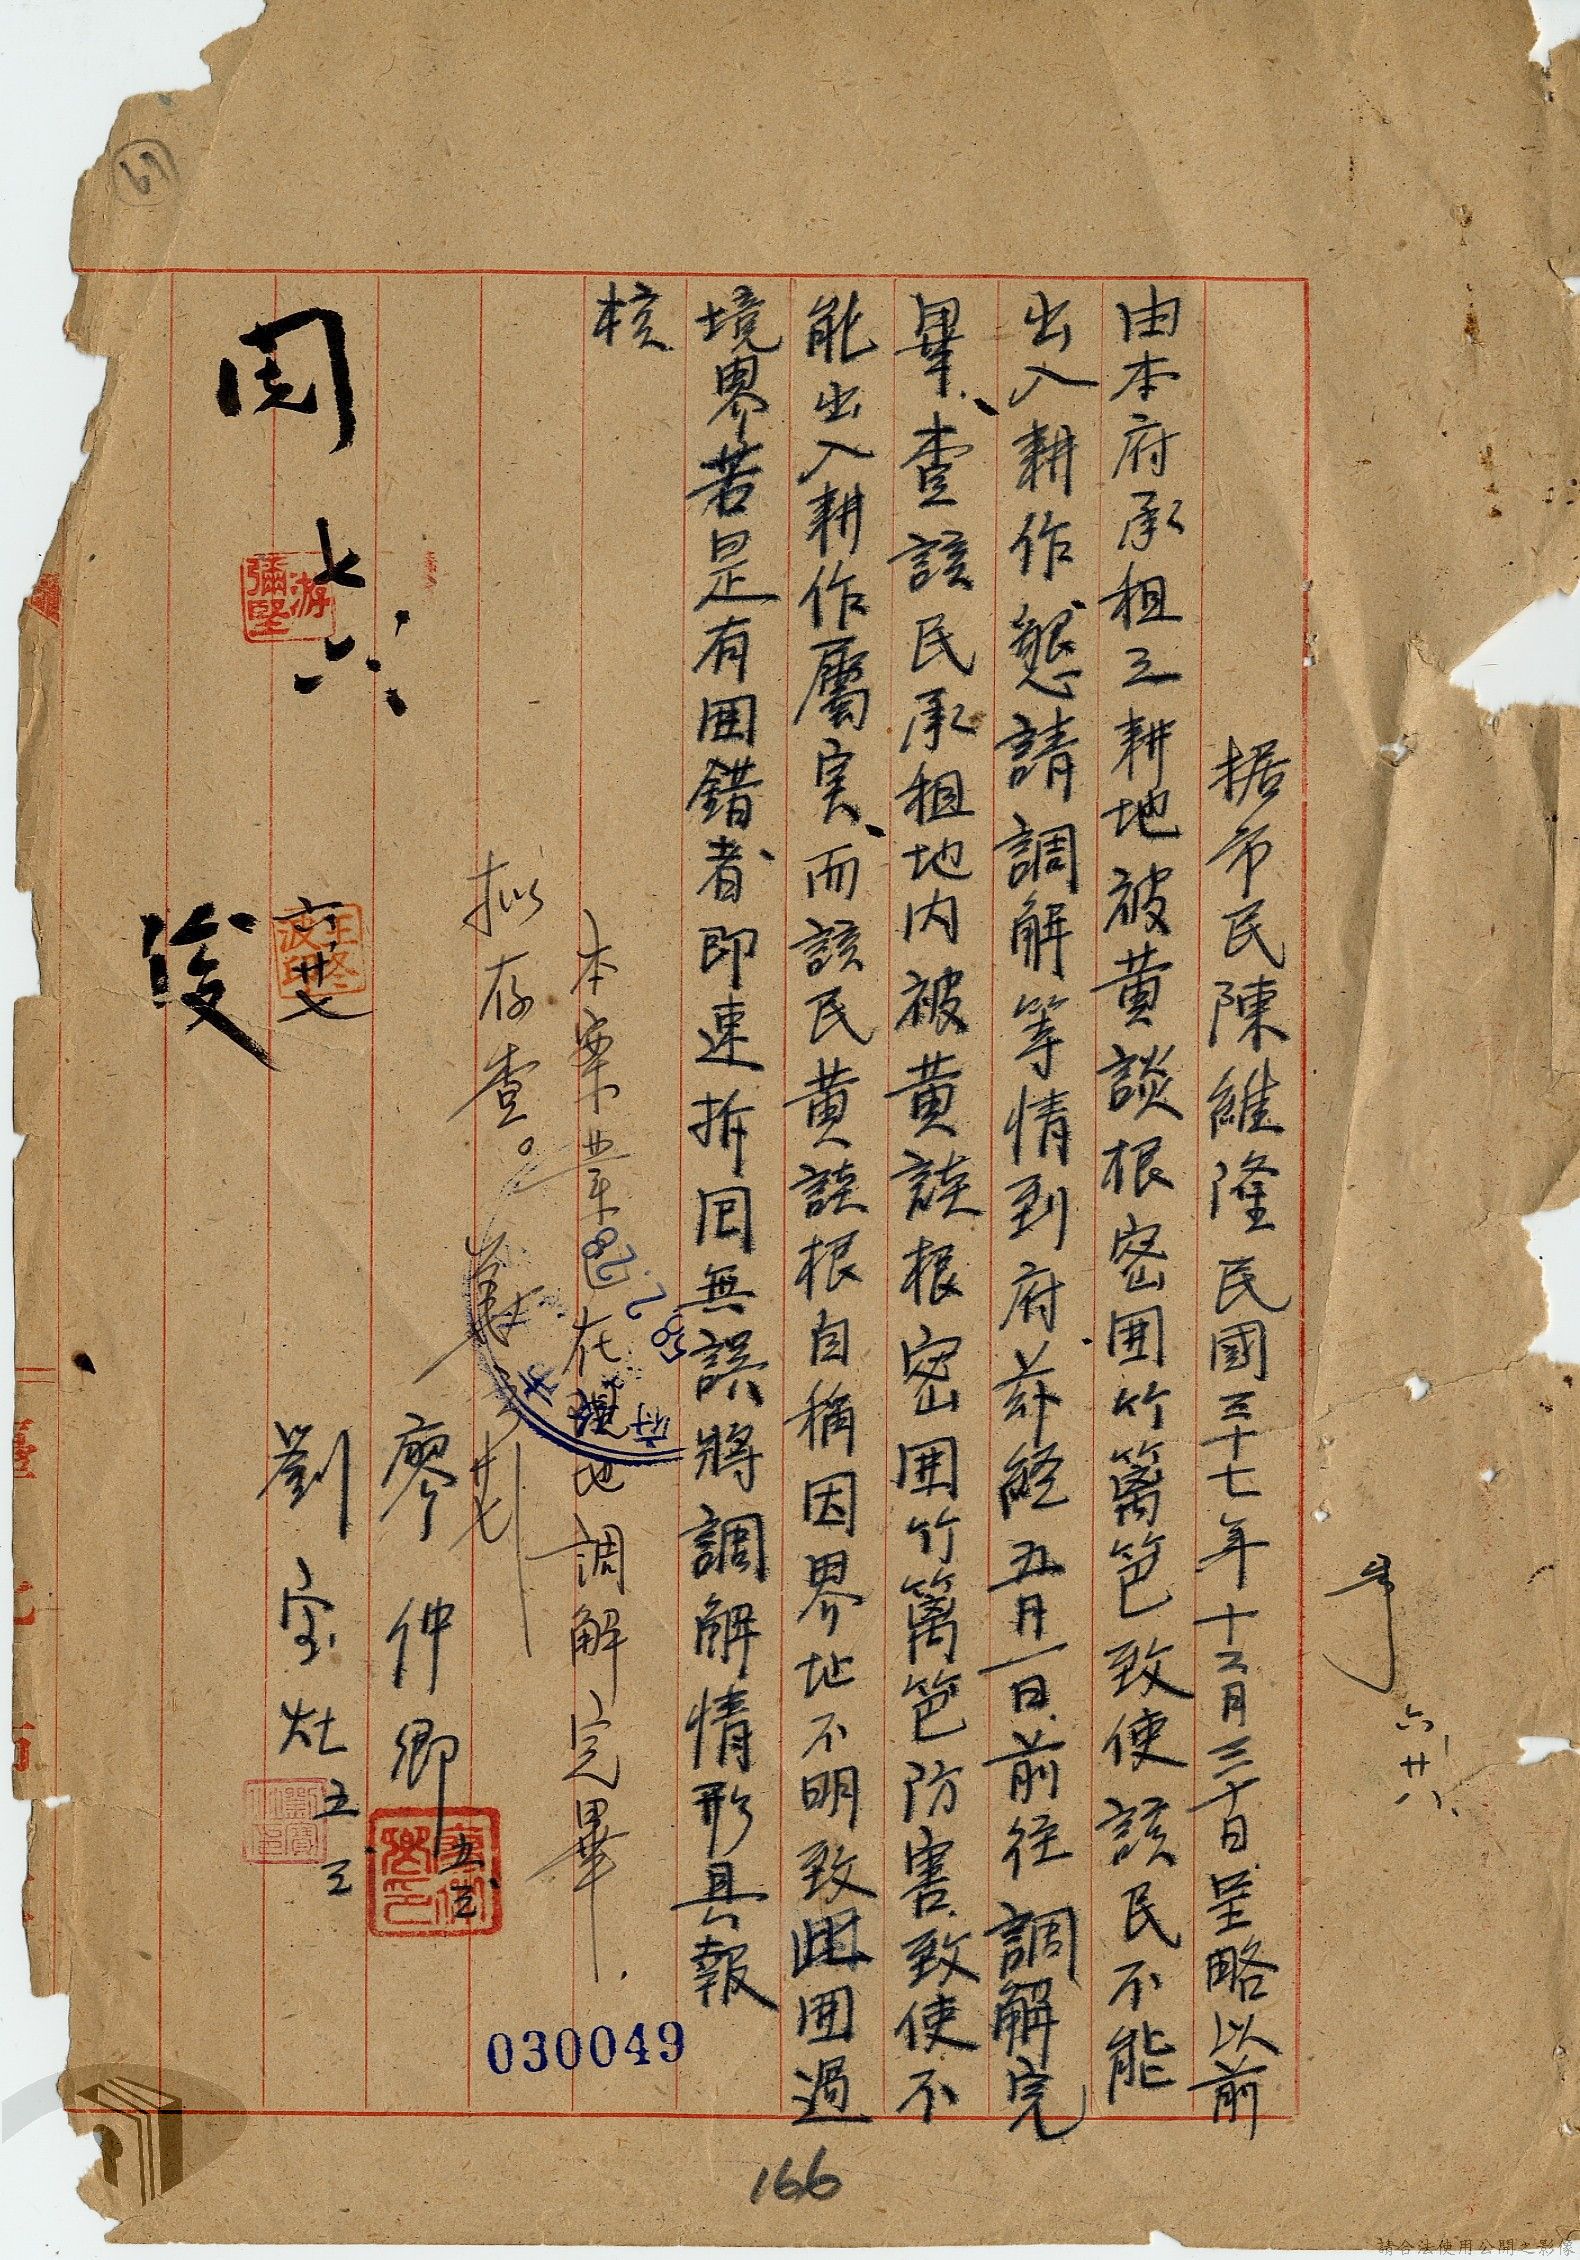 据市民陳維隆民國三十七年十二月三十日呈略以前
由本府承租之耕地被黄談根密囲竹籬笆致使該民不能
出入耕作懇請調解等情到府茲経五月一日前往調解完
畢、查該民承租地内被黄談根密囲竹籬笆防害致使不
能出入耕作屬实、而該民黄談根自稱因界址不明致此囲過
境界若是有囲錯者即速拆回無誤將調解情形具報
核
本案業已在現地調解完畢.
拟存查。
廖仲卿 五、三
劉宝灶 五、三
六、廿七
閱 七、六、
俊
六、廿八、
游彌堅
030049
166
67
請合法使用公開之影像